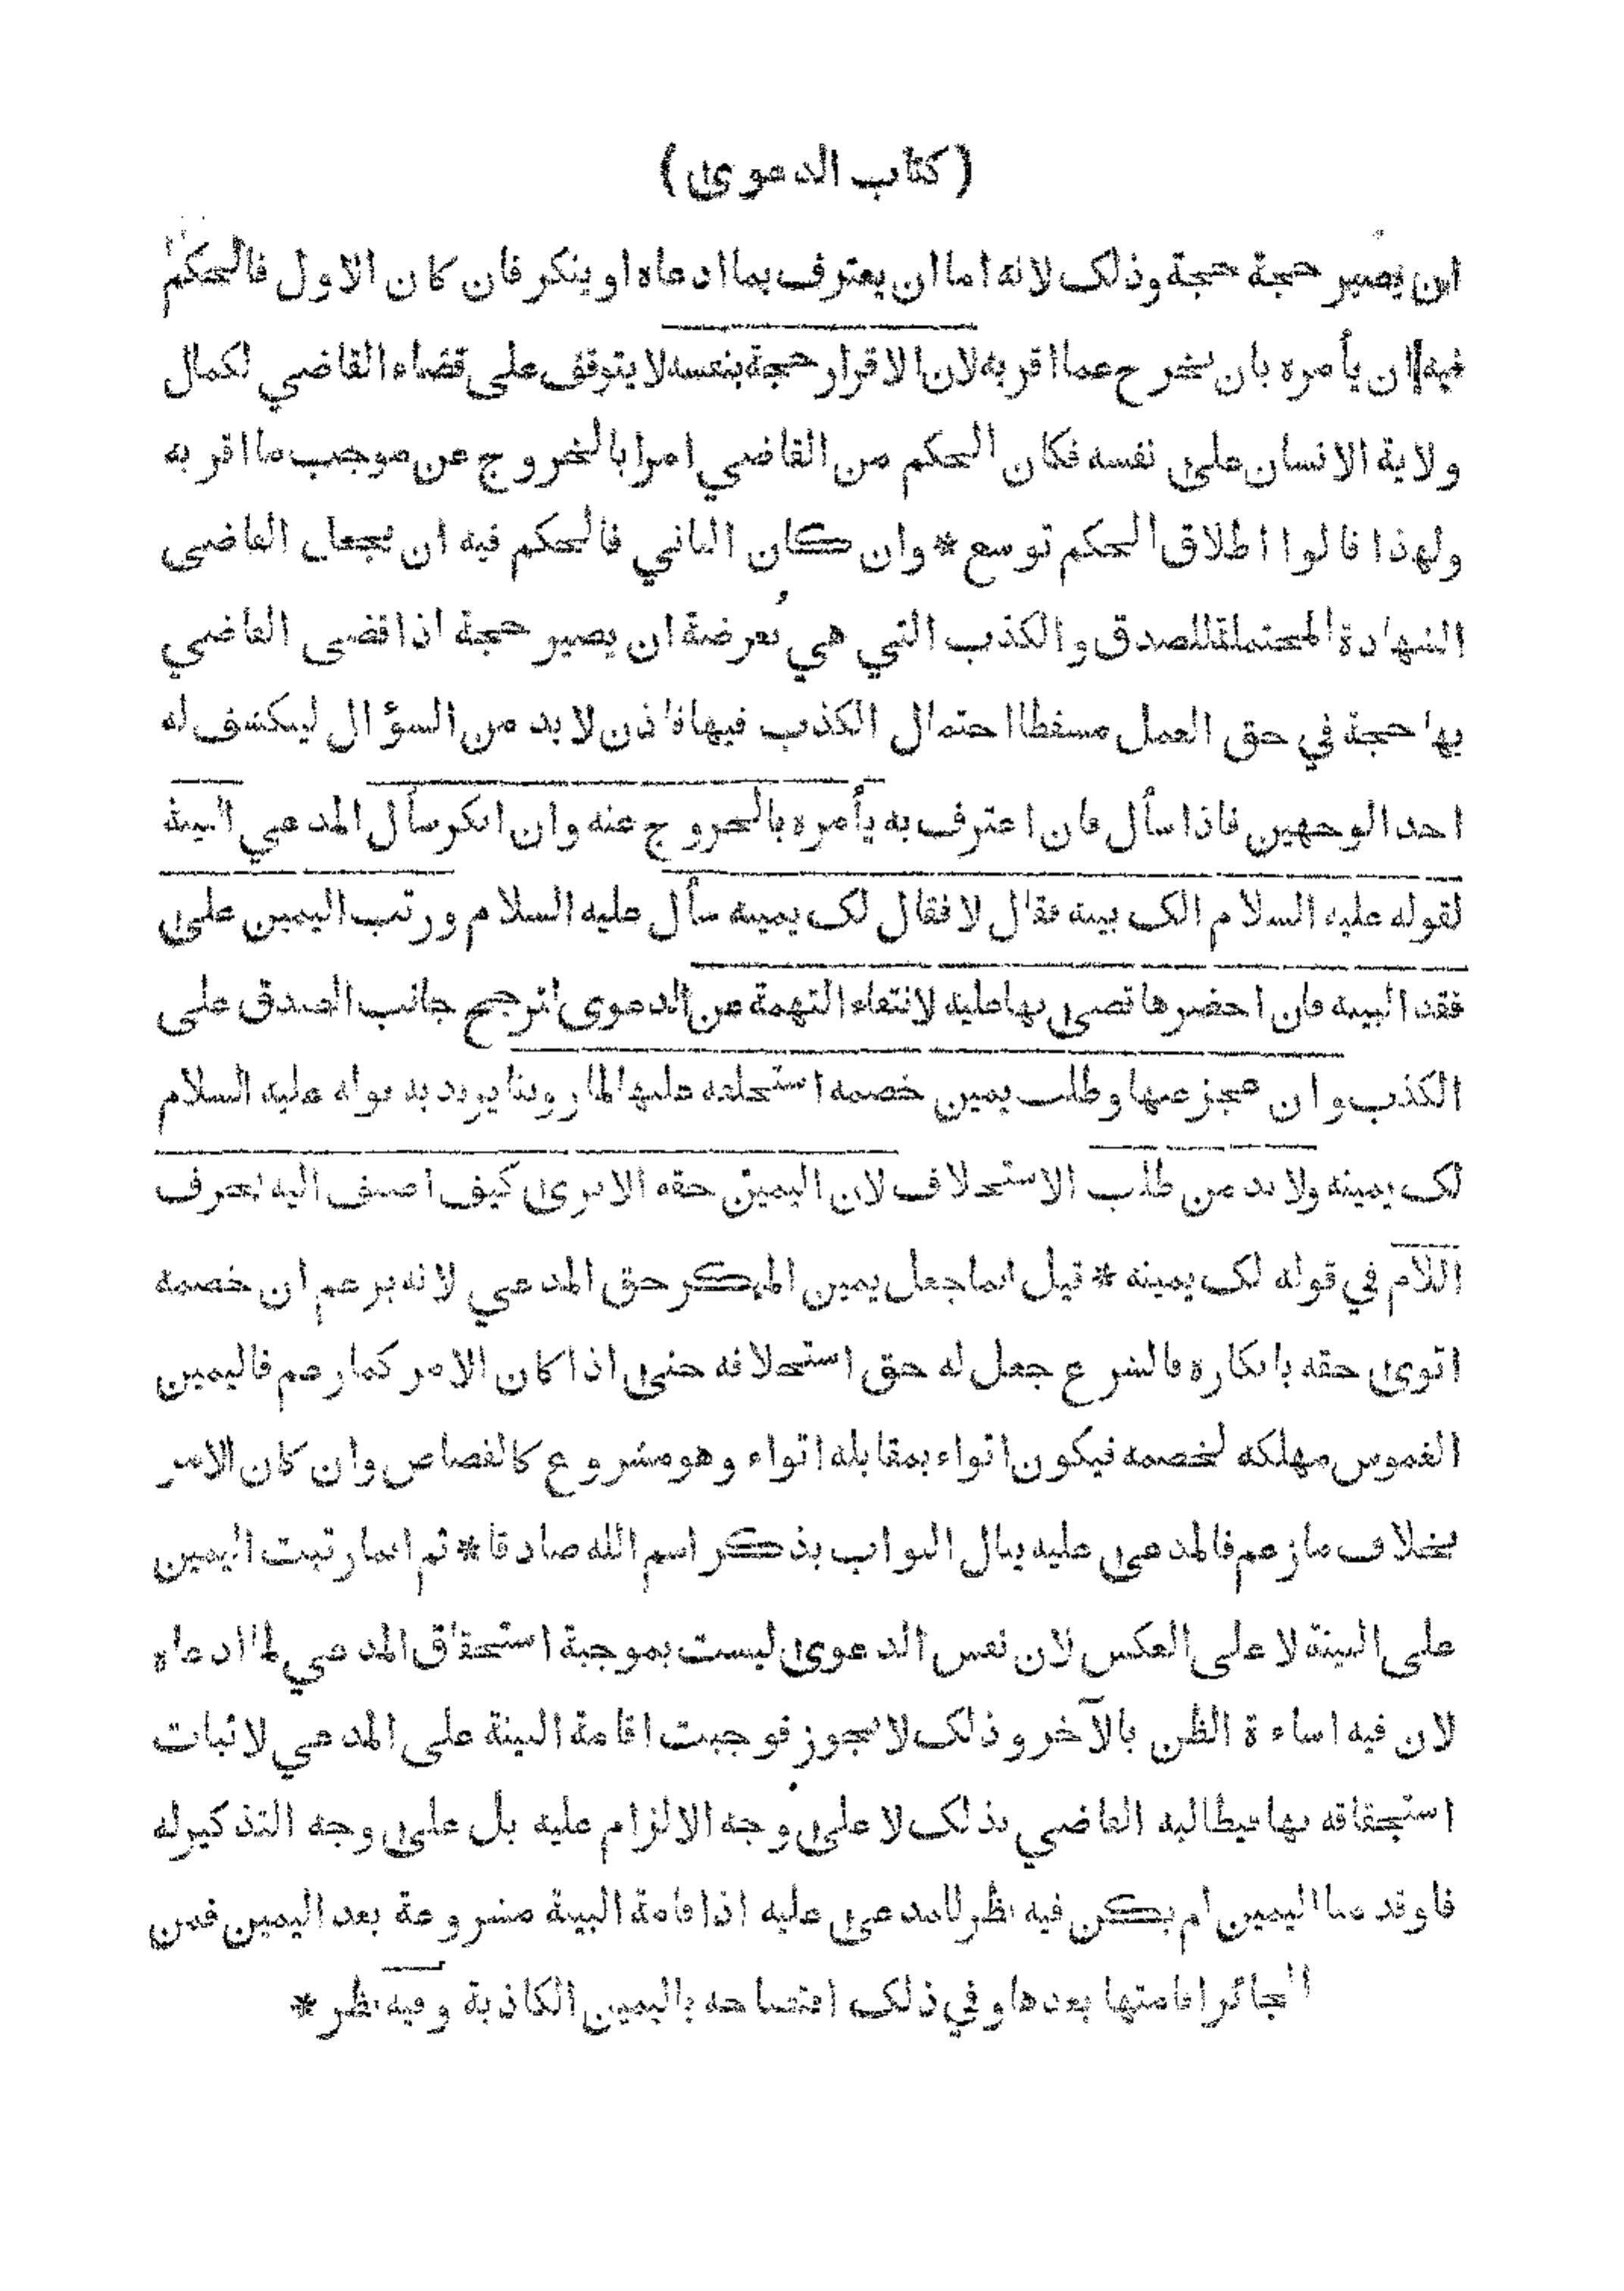 ( كتاب الدعوى )
ان يصير حجة حجة وذلك لانه اما ان يعترف بما ادعاه او ينكر فان كان الاول فالحكم
فيه ان يأمره بان يخرج عما اقر به لان الاقرار حجة بنفسه لا يتوقف على قضاء القاضي لكمال
ولاية الانسان على نفسه فكان الحكم من القاضي امرا بالخروج عن موجب ما اقر به
ولهذا قالوا اطلاق الحكم توسع * وان كان الثاني فالحكم فيه ان يجعل القاضي
الشهادة المحتملة للصدق والكذب التي هي بعرضة ان يصير حجة اذا قضى القاضي
بها حجة في حق العمل مسقطا احتمال الكذب فيها فاذن لا بد من السؤال ليكشف له
احد الوجهين فاذا سأل فان اعترف به يأمره بالخروج عنه وان انكر سأل المدعي البينة
لقوله عليه السلام الك بينة فقال لا فقال لك يمينه سأل عليه السلام ورتب اليمين على
فقد البينة فان احضرها قضى بها عليه لانتفاء التهمة عن الدعوى لترجح جانب الصدق على
الكذب وان عجز عنها وطلب يمين خصمه استحلفه عليها لما روينا يريد به قوله عليه السلام
لك يمينه ولا بد من طلب الاستحلاف لان اليمين حقه الا يرى كيف اضيف اليه بحرف
اللام في قوله لك يمينه * قيل انما جعل يمين المنكر حق المدعي لانه يزعم ان خصمه
اتوى حقه بانكاره فالشرع جعل له حق استحلافه حتى اذا كان الامر كما زعم فاليمين
الغموس مهلكه لخصمه فيكون اتواء بمقابلة اتواء وهو مشروع كالقصاص وان كان الامر
بخلاف ما زعم فالمدعى عليه ينال الثواب بذكر اسم الله صادقا * ثم انما رتبت اليمين
على البينة لا على العكس لان نفس الدعوى ليست بموجبة استحقاق المدعي لما ادعاه
لان فيه اساءة الظن بالآخر وذلك لا يجوز فوجبت اقامة البينة على المدعي لاثبات
استحقاقه بها فيطالبه القاضي بذلك لا على وجه الالزام عليه بل على وجه التذكير له
فلو قدمنا اليمين لم يكن فيه نظر للمدعى عليه اذ اقامة البينة مشروعة بعد اليمين فمن
الجائز اقامتها بعدها وفي ذلك افتضاحه باليمين الكاذبة وفيه نظر *